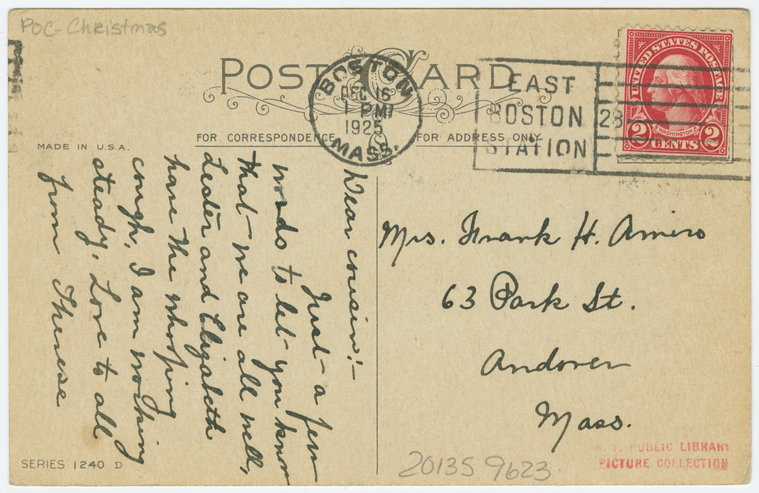 POC-Christmas
POST CARD
BOSTON
DEC 16
1 PM
1925
MASS.
EAST
BOSTON
STATION
28
UNITED STATES POSTAGE
WASHINGTON
2 CENTS 2
FOR CORRESPONDENCE
FOR ADDRESS ONLY
MADE IN U.S.A.
Dear cousin:-
Just a few
words to let you know
that we are all well,
Lester and Elizabeth
have the whooping
cough, I am working
steady. Love to all
from Therese
Mrs. Frank H. Amiro
63 Park St.
Andover
Mass.
SERIES 1240 D
20135 9623
PUBLIC LIBRARY
PICTURE COLLECTION